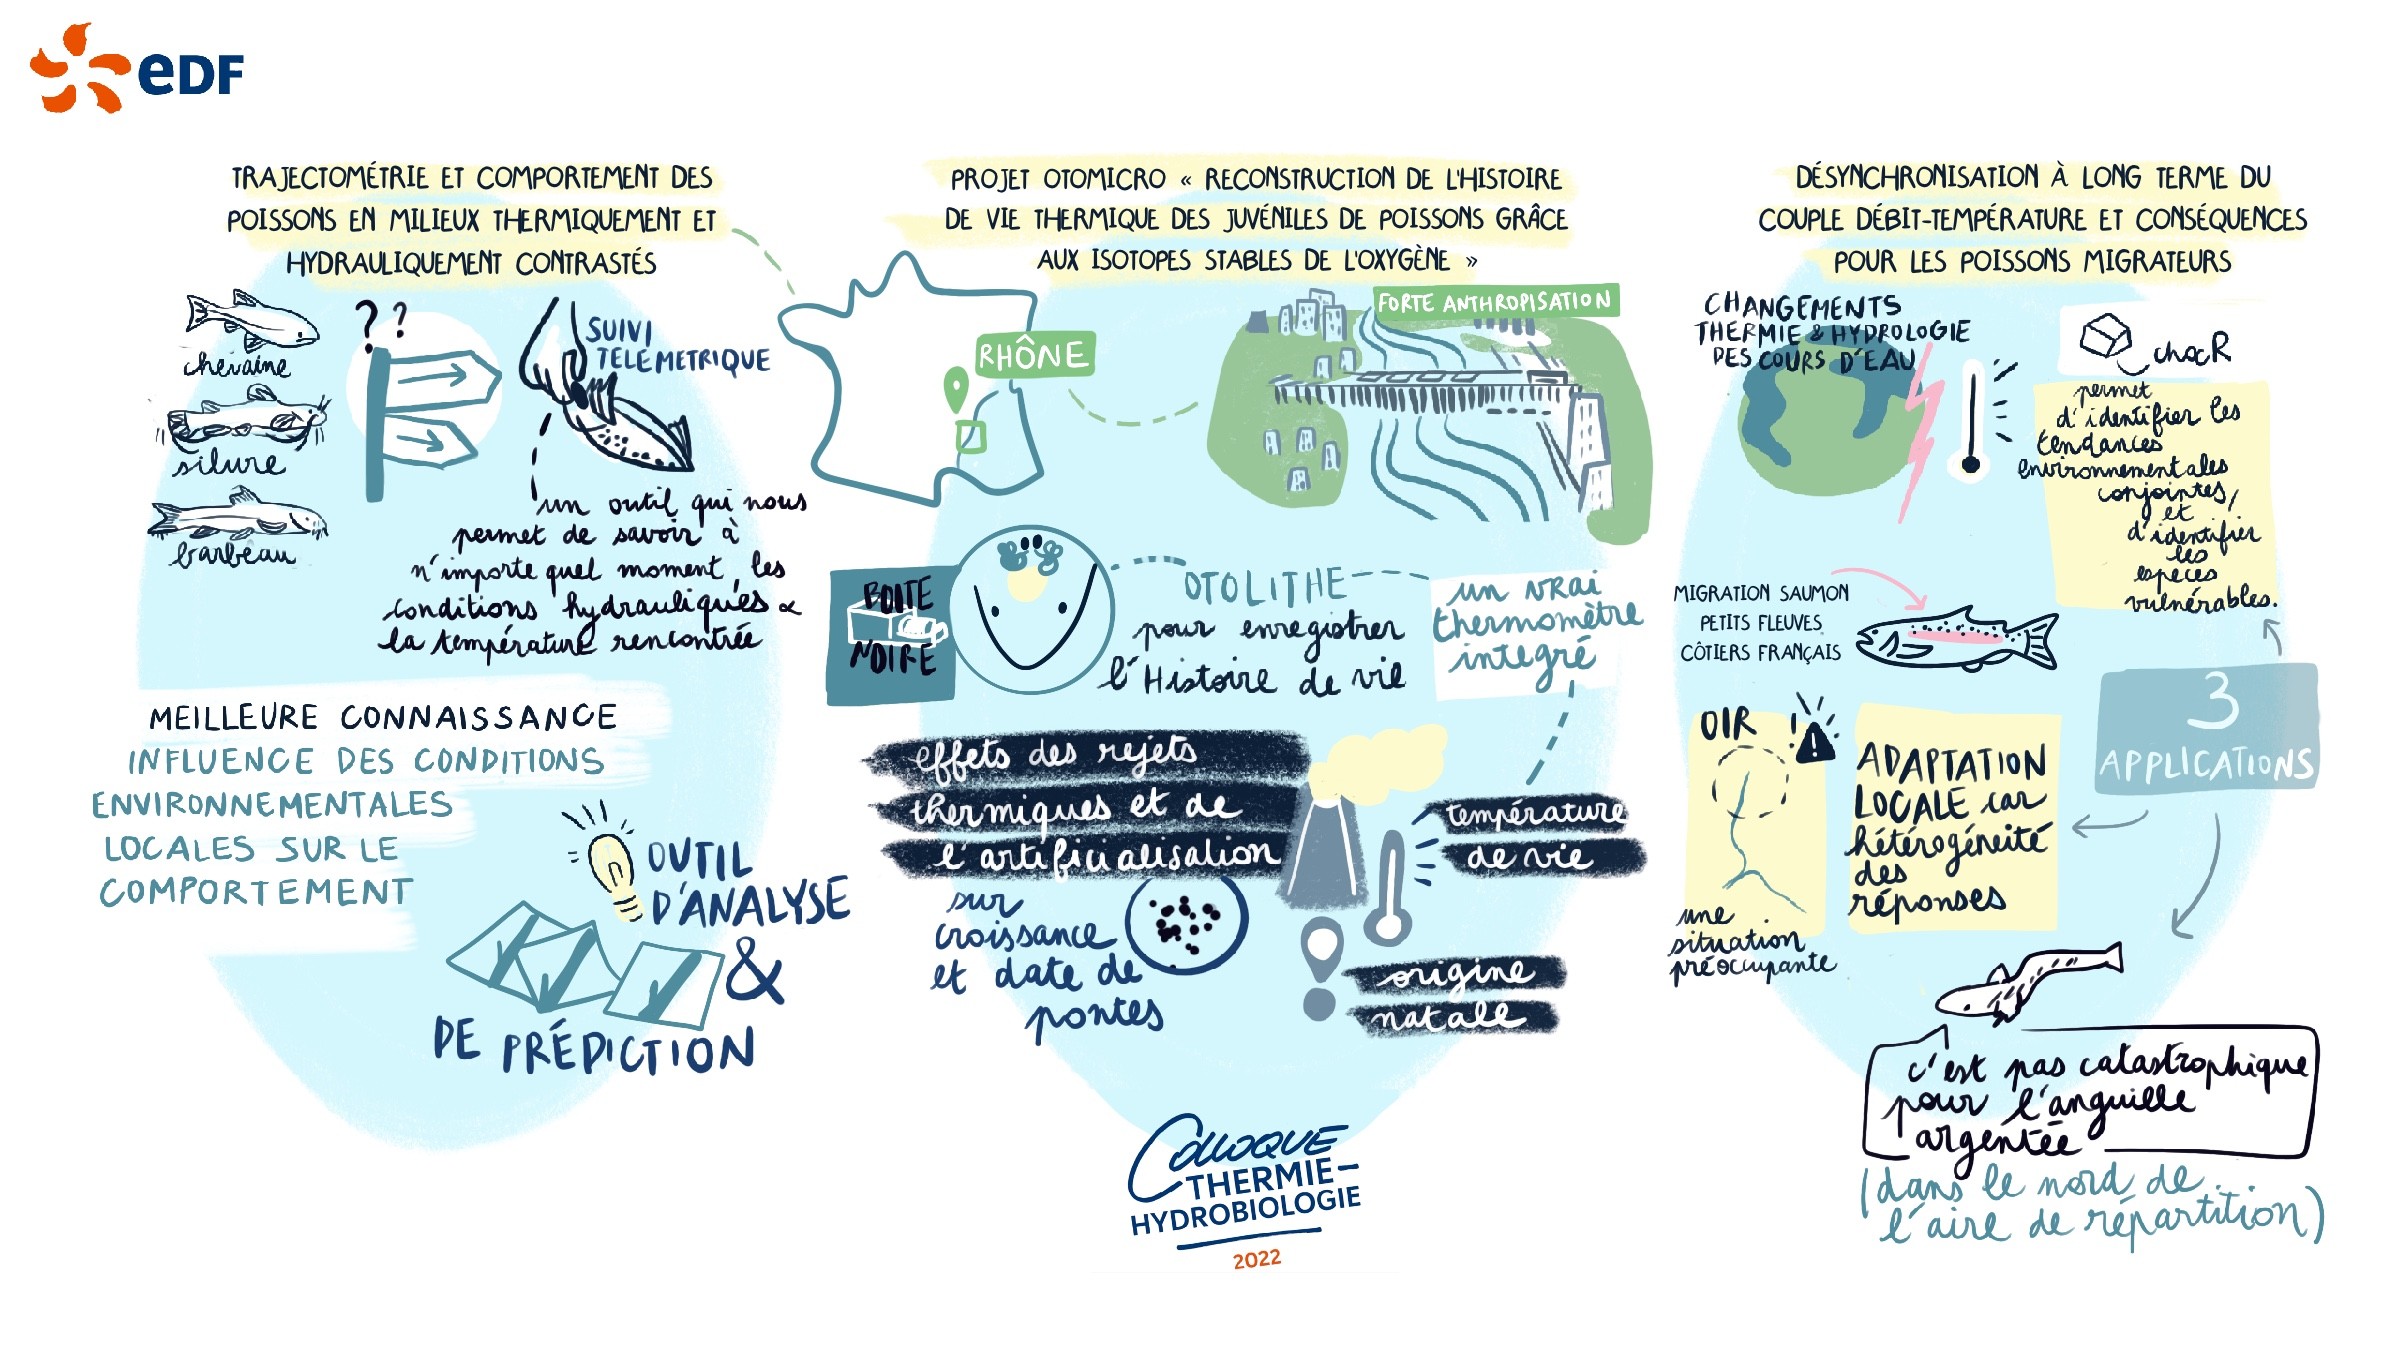 eDF
TRAJECTOMÉTRIE ET COMPORTEMENT DES
POISSONS EN MILIEUX THERMIQUEMENT ET
HYDRAULIQUEMENT CONTRASTÉS
chevaine
silure
barbeau
? ?
SUIVI
TELEMETRIQUE
un outil qui nous
permet de savoir à
n'importe quel moment, les
conditions hydrauliques &
la température rencontrée
MEILLEURE CONNAISSANCE
INFLUENCE DES CONDITIONS
ENVIRONNEMENTALES
LOCALES SUR LE
COMPORTEMENT
OUTIL
D'ANALYSE
&
DE PRÉDICTION
PROJET OTOMICRO « RECONSTRUCTION DE L'HISTOIRE
DE VIE THERMIQUE DES JUVÉNILES DE POISSONS GRÂCE
AUX ISOTOPES STABLES DE L'OXYGÈNE »
RHÔNE
FORTE ANTHROPISATION
BOITE
NOIRE
OTOLITHE
pour enregistrer
l'Histoire de vie
un vrai
thermomètre
integré
effets des rejets
thermiques et de
l'artificialisation
sur
croissance
et date de
pontes
température
de vie
origine
natale
COLLOQUE
THERMIE-
HYDROBIOLOGIE
2022
DÉSYNCHRONISATION À LONG TERME DU
COUPLE DÉBIT-TEMPÉRATURE ET CONSÉQUENCES
POUR LES POISSONS MIGRATEURS
CHANGEMENTS
THERMIE & HYDROLOGIE
DES COURS D'EAU
chocR
permet
d'identifier les
tendances
environnementales
conjointes,
et
d'identifier
les
espèces
vulnérables.
MIGRATION SAUMON
PETITS FLEUVES
CÔTIERS FRANÇAIS
3
APPLICATIONS
OIR
!
une
situation
préoccupante
ADAPTATION
LOCALE car
hétérogénéité
des
réponses
c'est pas catastrophique
pour l'anguille
argentée
(dans le nord de
l'aire de répartition)